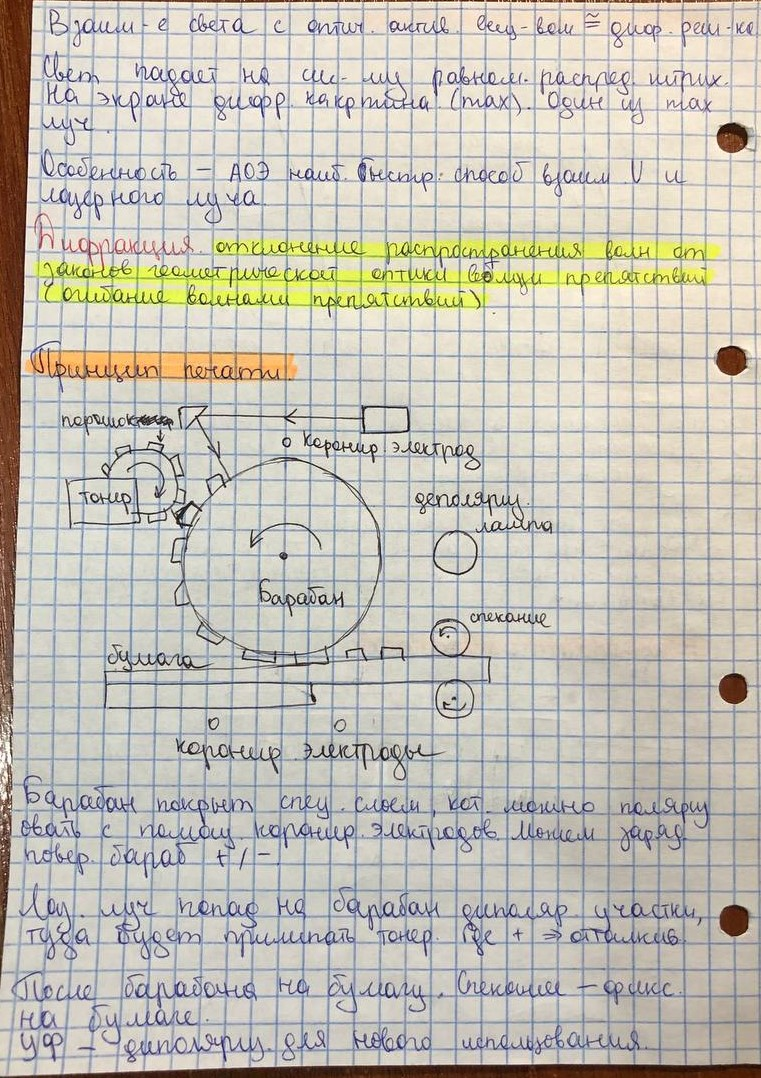 Взаим-е света с оптич. актив. вещ-вом ≅ диф. реш-ка
Свет падает на си-му равном. распред. штрих.
На экране дифр. какртина (max). Один из max
луч.
Особенность – АОЭ наиб. быстр. способ взаим U и
лазерного луча.
Дифракция. отклонение распространения волн от
законов геометрической оптики вблизи препятствий
(огибание волнами препятствий)
Принцип печати.
порошок
коронир. электрод
тонер
деполяриз.
лампа
Барабан
спекание
бумага
коронир электроды
Барабан покрыт спец. слоем, кот. можно поляриз
овать с помощ. коронир. электродов. Можем заряд.
повер. бараб + / –
Лаз. луч попад на барабан диполяр. участки,
туда будет прилипать тонер. Где + ⇒ отталкив.
После барабана на бумагу. Спекание – фикс.
на бумаге.
УФ – диполяриз. для нового использования.